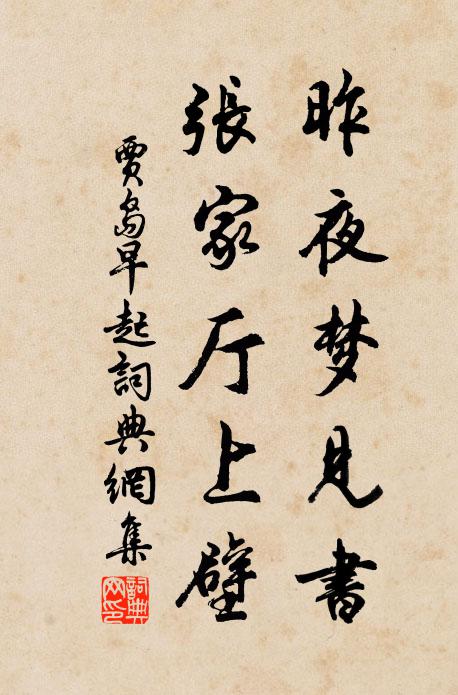 昨夜梦見書
張家厅上壁
賈島早起詞典網集
詞典网印